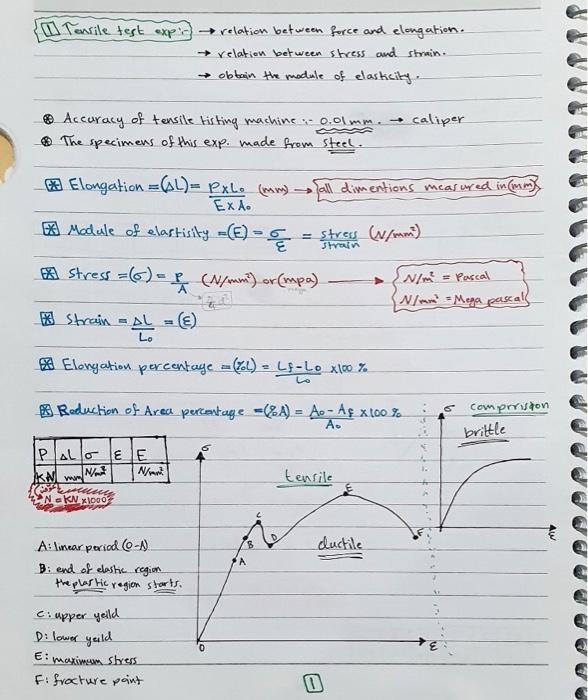 1 Tensile test exp:- → relation between force and elongation.
→ relation between stress and strain.
→ obtain the module of elasticity.
⊛ Accuracy of tensile tisting machine :- 0.01mm. → caliper
⊛ The specimens of this exp. made from steel.
Elongation = (ΔL) = P×L₀ / E×A₀ (mm) → all dimentions measured in (mm)
Module of elastisity = (E) = σ/ε = stress/strain (N/mm²)
Stress = (σ) = P/A (N/mm²) or (mpa) → N/m² = Pascal
N/mm² = Mega pascal
Strain = ΔL/L₀ = (ε)
Elongation percentage = (%L) = Lf-L₀/L₀ ×100 %
Reduction of Area percentage = (%A) = A₀-Af/A₀ ×100 %
σ comprrision
brittle
ε
P ΔL σ ε E
KN mm N/mm² N/mm²
N = KN×1000
σ
tensile
ductile
A B C D E F
0 ε
A: linear period (0-A)
B: end of elastic region
the plastic region starts.
C: upper yeild
D: lower yeild
E: maximum stress
F: fracture point
1